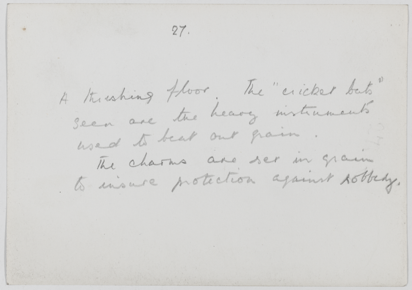 27.
A threshing floor. The "cricket bats"
seen are the heavy instruments
used to beat out grain.
The charms are set in grain
to insure protection against robbery.